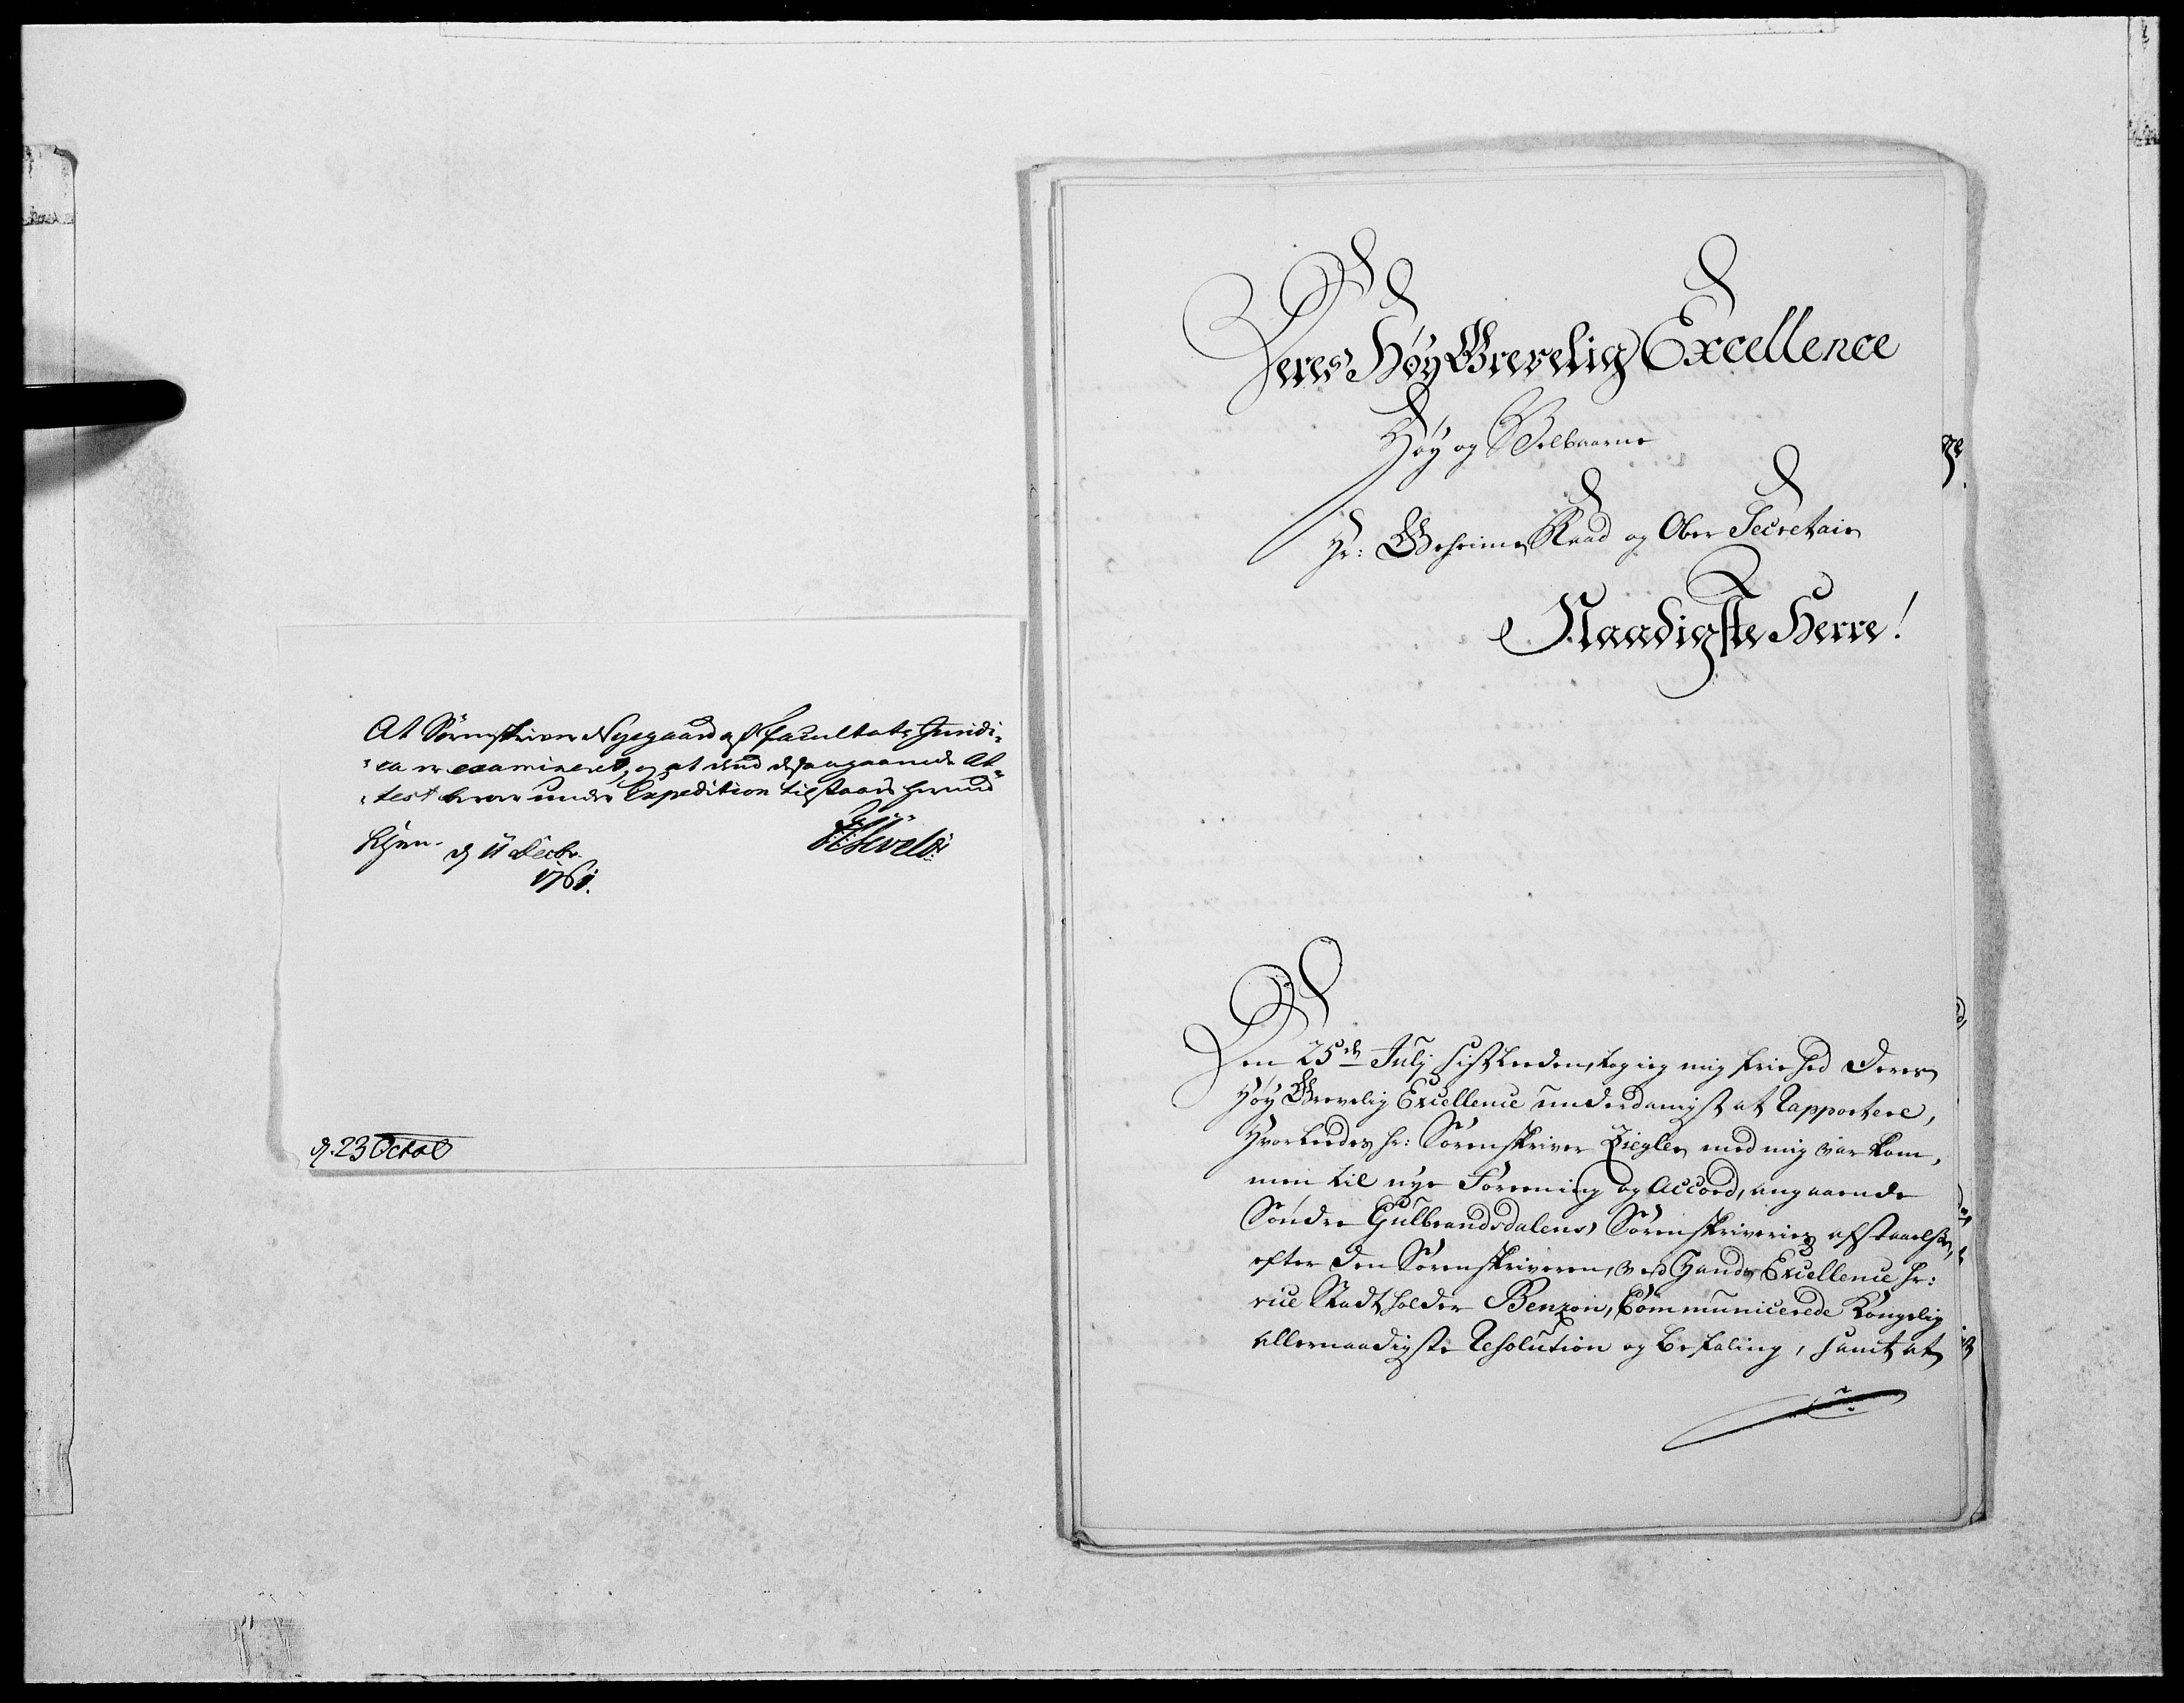 At Sorenskriver Nyegaard af facultate Juridi-
-ca er examineret, og at med desangaaende At-
-test bevares under Expedition tilstaaes herved
Khfn. d 11 Decbr.
1761.
d. 23 Octob
Deres Høy Grevelig Excellence
Høy og Velbaarne
Hr: Geheime Raad og Ober Secretair
Naadigste Herre!
Den 25de Julj sistleeden, tog ieg mig friehed Deres
Høy Grevelig Excellence underdanigst at Rapportere,
Hvorleedes hr: Sorenskriver Ziegler med mig var kom-
men til nye Foreening og Accord, angaaende
Søndre Gulbrandsdalens Sorenskriveries afstaaelse,
efter den Sorenskriveren, ved Hands Excellence hr:
vice Stadtholder Benzon, Communicerede Kongelig
allernaadigste Resolution og befaling, samt at